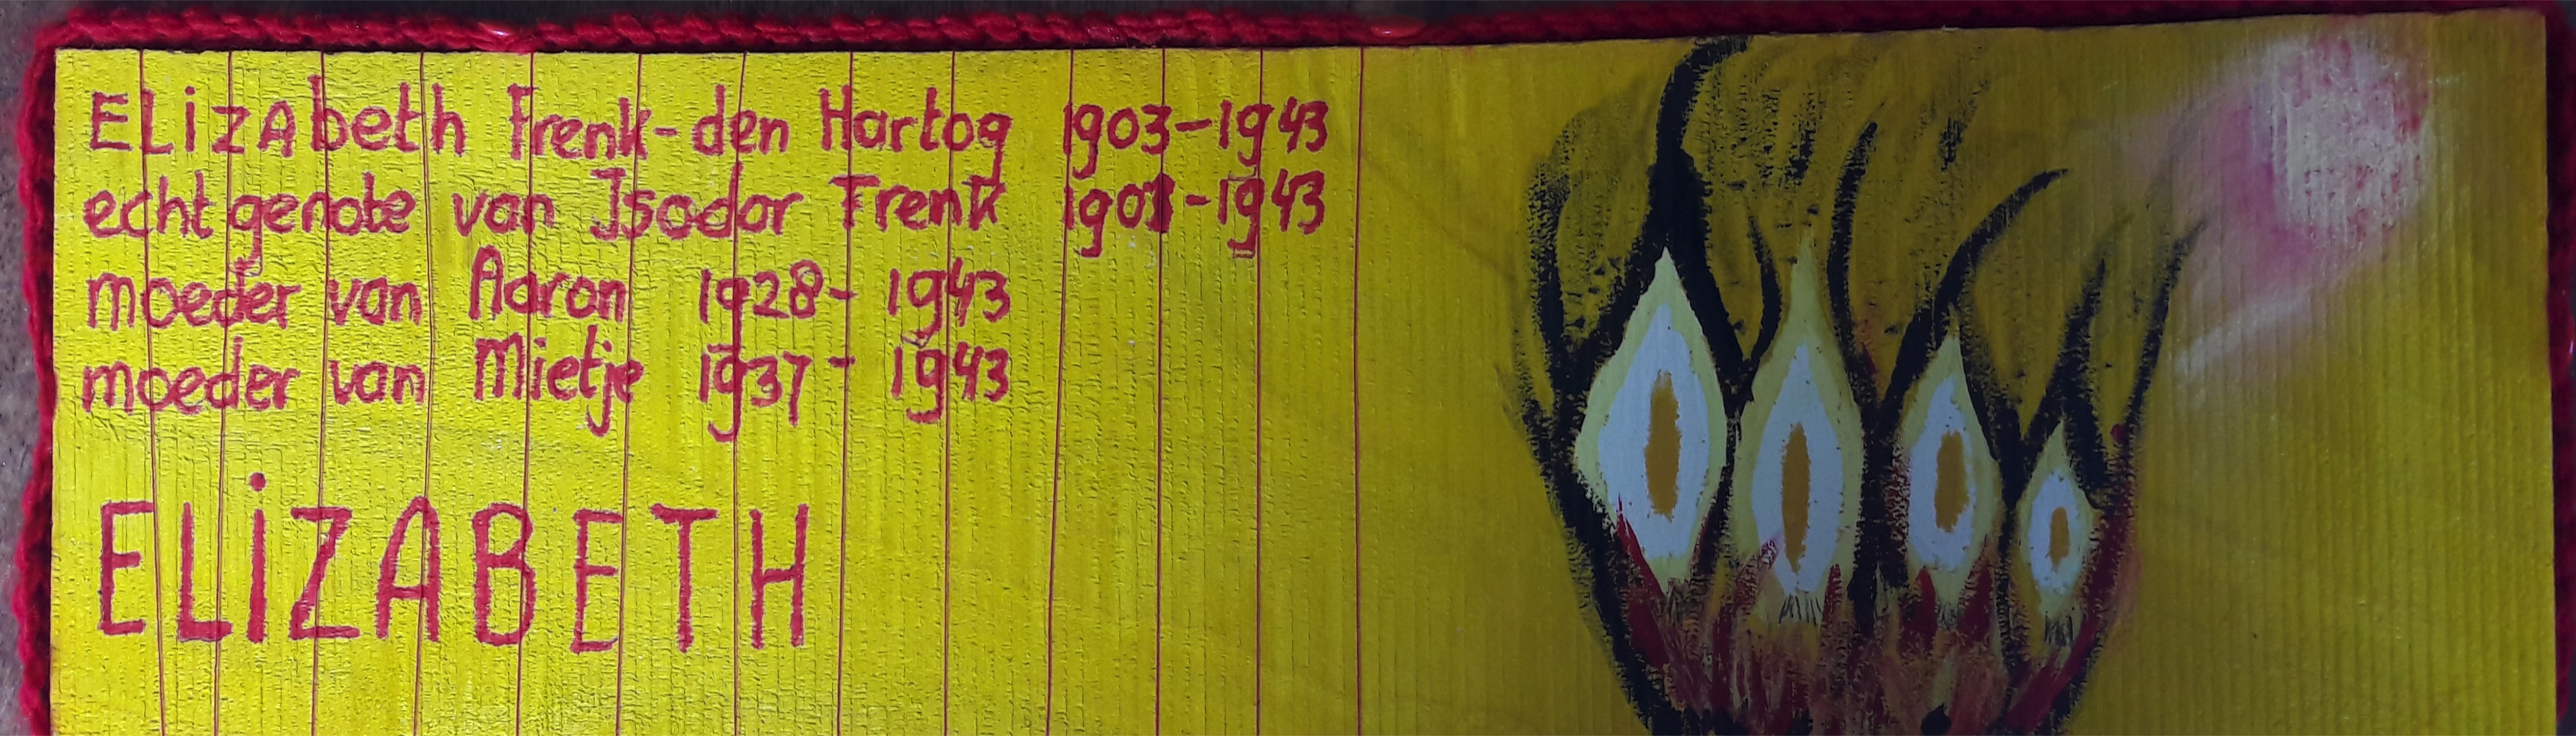 ELizAbeth Frenk-den Hartog 1903-1943
echtgenote van Isodor Frenk 1901-1943
moeder van Aaron 1928-1943
moeder van Mietje 1937-1943
ELiZABETH